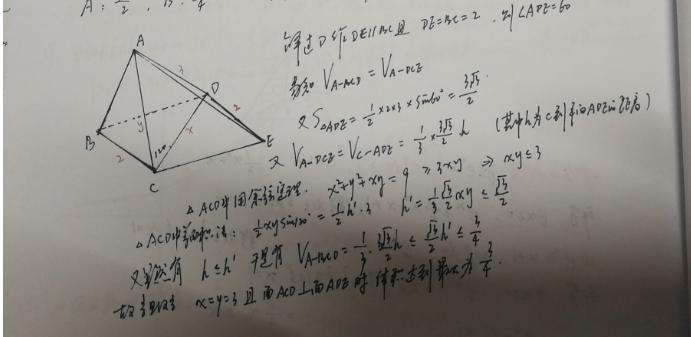 A: /2, B: /4
解过D作DE//BC且 DE=BC=2，则∠ADE=60
易知 V_{A-BCD} = V_{A-DCE}
又S_{△ADE} = \frac{1}{2}×2×3×sin60° = \frac{3\sqrt{3}}{2}
又 V_{A-DCE} = V_{C-ADE} = \frac{1}{3}×\frac{3\sqrt{3}}{2} h (其中h为C到平面ADE的距离)
△ACD中用余弦定理. x²+y²+xy = 9 ≥ 3xy ⇒ xy ≤ 3
△ACD中等面积法: \frac{1}{2}xysin120° = \frac{1}{2}h'·3 h' = \frac{1}{3}\frac{\sqrt{3}}{2}xy ≤ \frac{\sqrt{3}}{2}
又显然有 h ≤ h' 于是有 V_{A-BCD} = \frac{1}{3}·\frac{3\sqrt{3}}{2}h ≤ \frac{\sqrt{3}}{2}h' ≤ \frac{3}{4}
故当 x=y=3 且 面ACD⊥面ADE 时 体积达到最大为 \frac{3}{4}.
A
3
D
y
2
B
x
E
2
120°
C